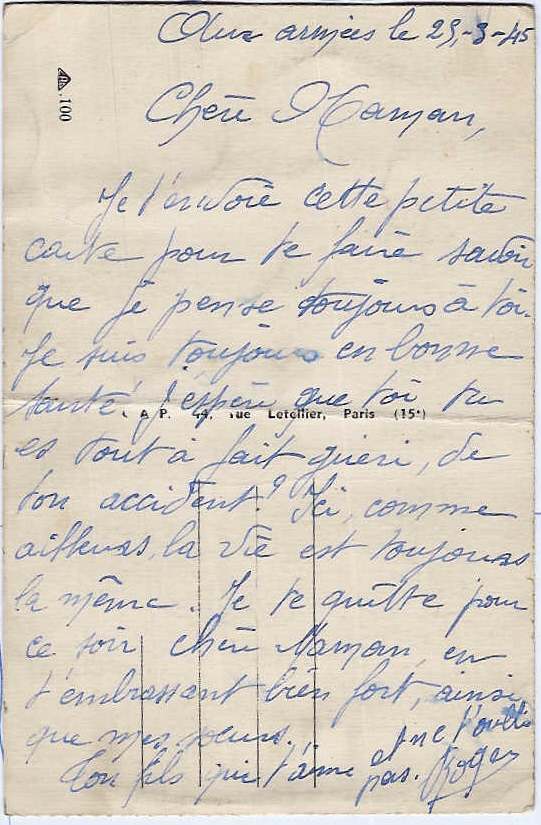 Aux armées le 29-3-45
100
Chère Maman,
Je t'envoie cette petite
carte pour te faire savoir
que je pense toujours à toi.
Je suis toujours en bonne
santé, j'espère que toi tu
A. P. 44, rue Letellier, Paris (15e)
es tout à fait guéri, de
ton accident? Ici, comme
ailleurs, la vie est toujours
la même. Je te quitte pour
ce soir chère Maman, en
t'embrassant bien fort, ainsi
que mes sœurs.
Ton fils qui t'aime et ne t'oublie
pas. Roger